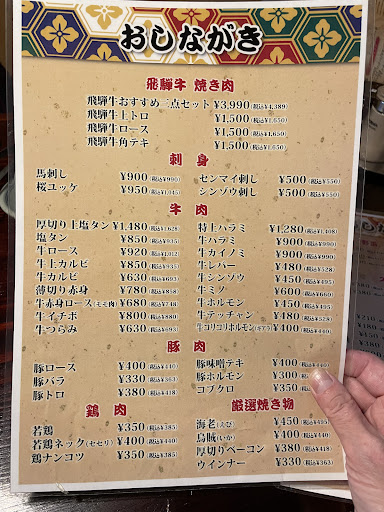 おしながき
飛騨牛 焼き肉
飛騨牛おすすめ二点セット ¥3,990(税込¥4,389)
飛騨牛上トロ ¥1,500(税込¥1,650)
飛騨牛ロース ¥1,500(税込¥1,650)
飛騨牛角テキ ¥1,500(税込¥1,650)
刺身
馬刺し ¥900(税込¥990)
桜ユッケ ¥950(税込¥1,045)
センマイ刺し ¥500(税込¥550)
シンゾウ刺し ¥500(税込¥550)
牛肉
厚切り上塩タン ¥1,480(税込¥1,628)
塩タン ¥850(税込¥935)
牛ロース ¥920(税込¥1,012)
牛上カルビ ¥850(税込¥935)
牛カルビ ¥630(税込¥693)
薄切り赤身 ¥780(税込¥858)
牛赤身ロース(モモ肉) ¥680(税込¥748)
牛イチボ ¥800(税込¥880)
牛つらみ ¥630(税込¥693)
特上ハラミ ¥1,280(税込¥1,408)
牛ハラミ ¥900(税込¥990)
牛カイノミ ¥900(税込¥990)
牛レバー ¥480(税込¥528)
牛シンゾウ ¥450(税込¥495)
牛ミノ ¥600(税込¥660)
牛ホルモン ¥450(税込¥495)
牛テッチャン ¥480(税込¥528)
牛コリコリホルモン(ギアラ) ¥400(税込¥440)
豚肉
豚ロース ¥400(税込¥440)
豚バラ ¥330(税込¥363)
豚トロ ¥380(税込¥418)
豚味噌テキ ¥400(税込¥440)
豚ホルモン ¥300(税込
コブクロ ¥350(税込
鶏肉
若鶏 ¥350(税込¥385)
若鶏ネック(セセリ) ¥400(税込¥440)
鶏ナンコツ ¥350(税込¥385)
厳選焼き物
海老(えび) ¥450(税込¥495)
烏賊(いか) ¥400(税込¥440)
厚切りベーコン ¥380(税込¥418)
ウインナー ¥330(税込¥363)